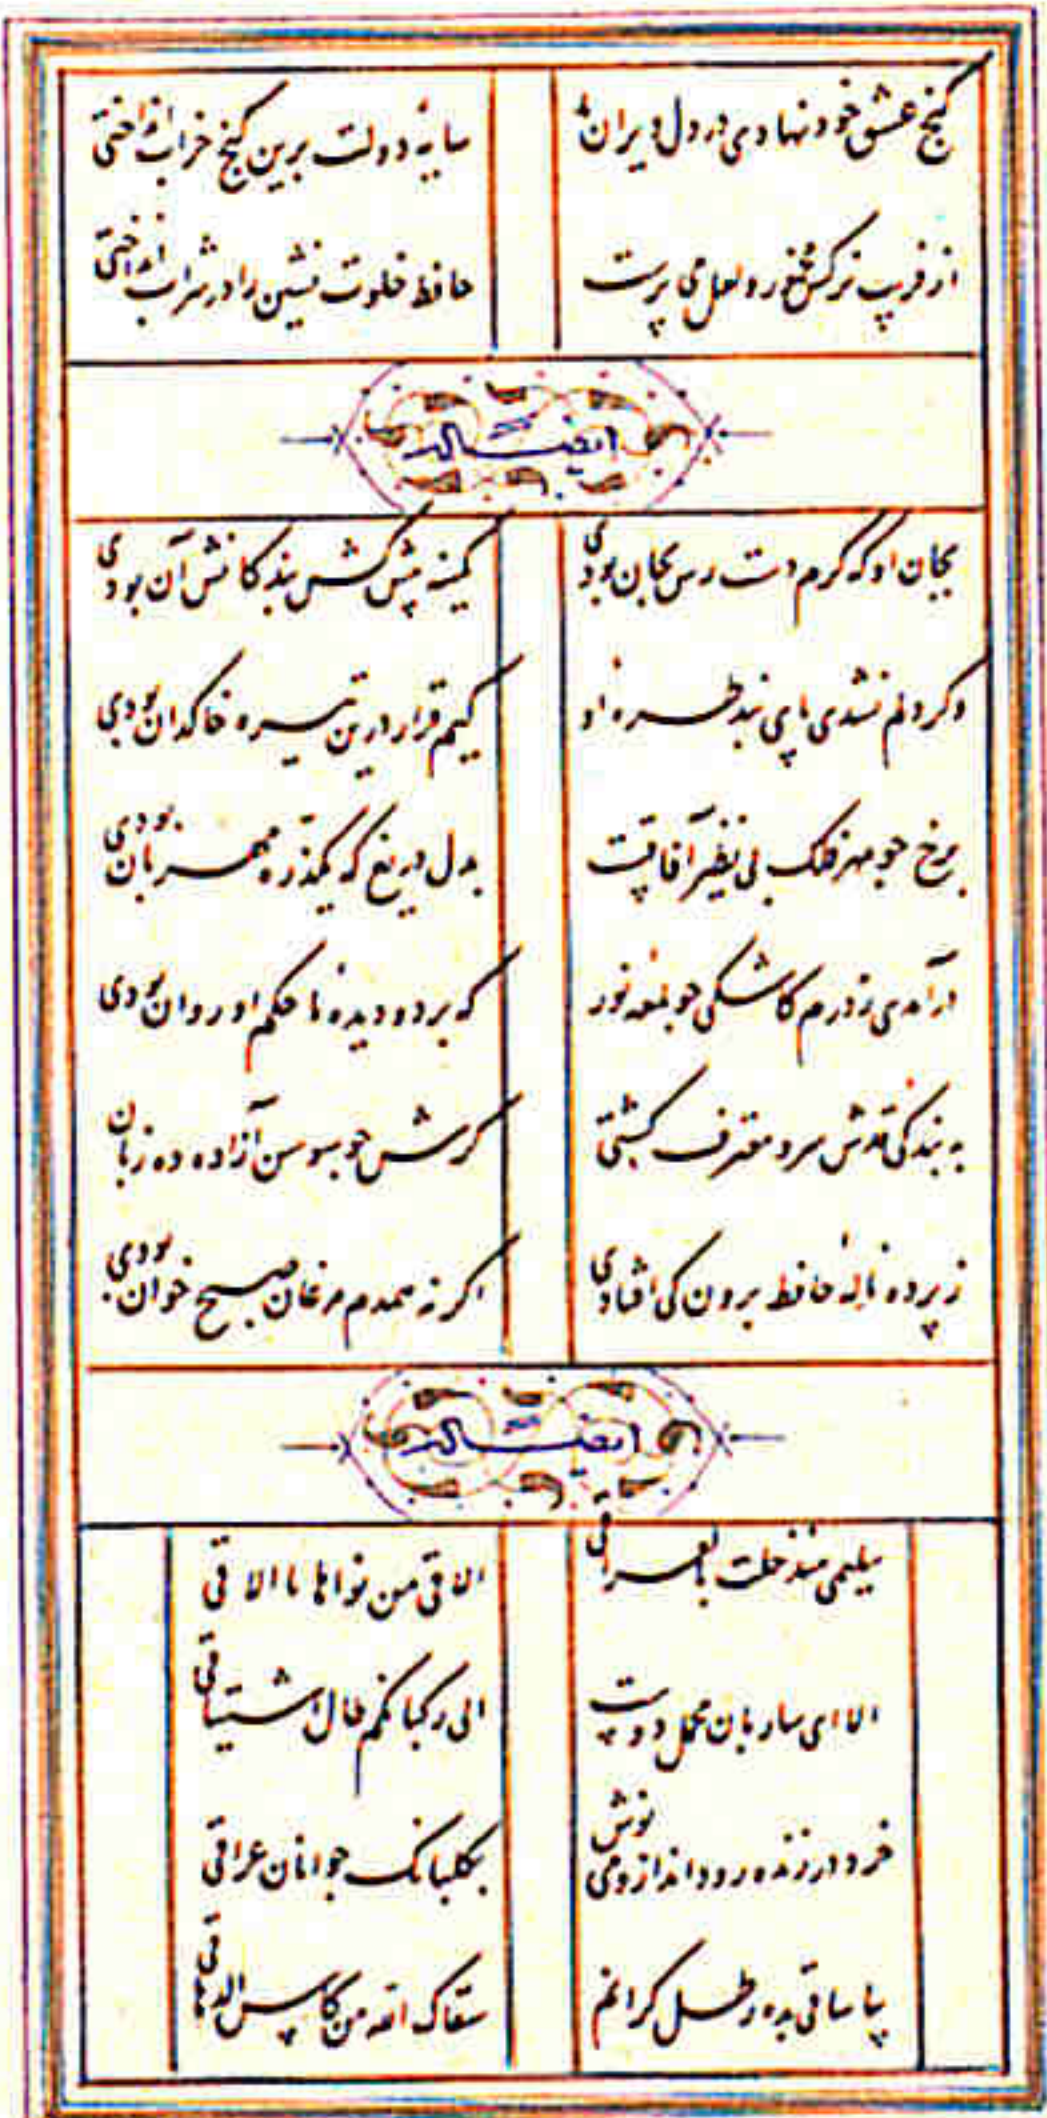 گنج عشق خود نهادی در دل ویران ما
سایهٔ دولت برین گنج خراب انداختی
از فریب نرکس مخمور و لعل می پرست
حافظ خلوت نشین را در شراب انداختی
ایضاله
بجان او که گرم دست رس بجان بودی
کمینه پیش کشش بندکانش آن بودی
وکر دلم نشدی پای بند طرهٔ او
کیم قرار درین تیره خاکدان بودی
برخ جو مهر فلک بی نظیر آفاقست
بدل دریغ که یکذره مهربان بودی
درآمدی ز درم کاشکی جو لمعه نور
که بر دو دیده ما حکم او روان بودی
به بندکی قدش سرو معترف کشتی
کرش جو سوسن آزاده ده زبان
ز پرده نالهٔ حافظ برون کی افتادی
اکر نه همدم مرغان صبح خوان بودی
ایضاله
سلیمی منذ حلت بالعراقی
الاقی من نواها ما الاقی
الا ای ساربان محمل دوست
الی رکبانکم طال اشتیاقی
خرد در زنده رود انداز و می نوش
بکلبانک جوانان عراقی
بیا ساقی بده رطل کرانم
سقاک الله من کاس الدهاقی